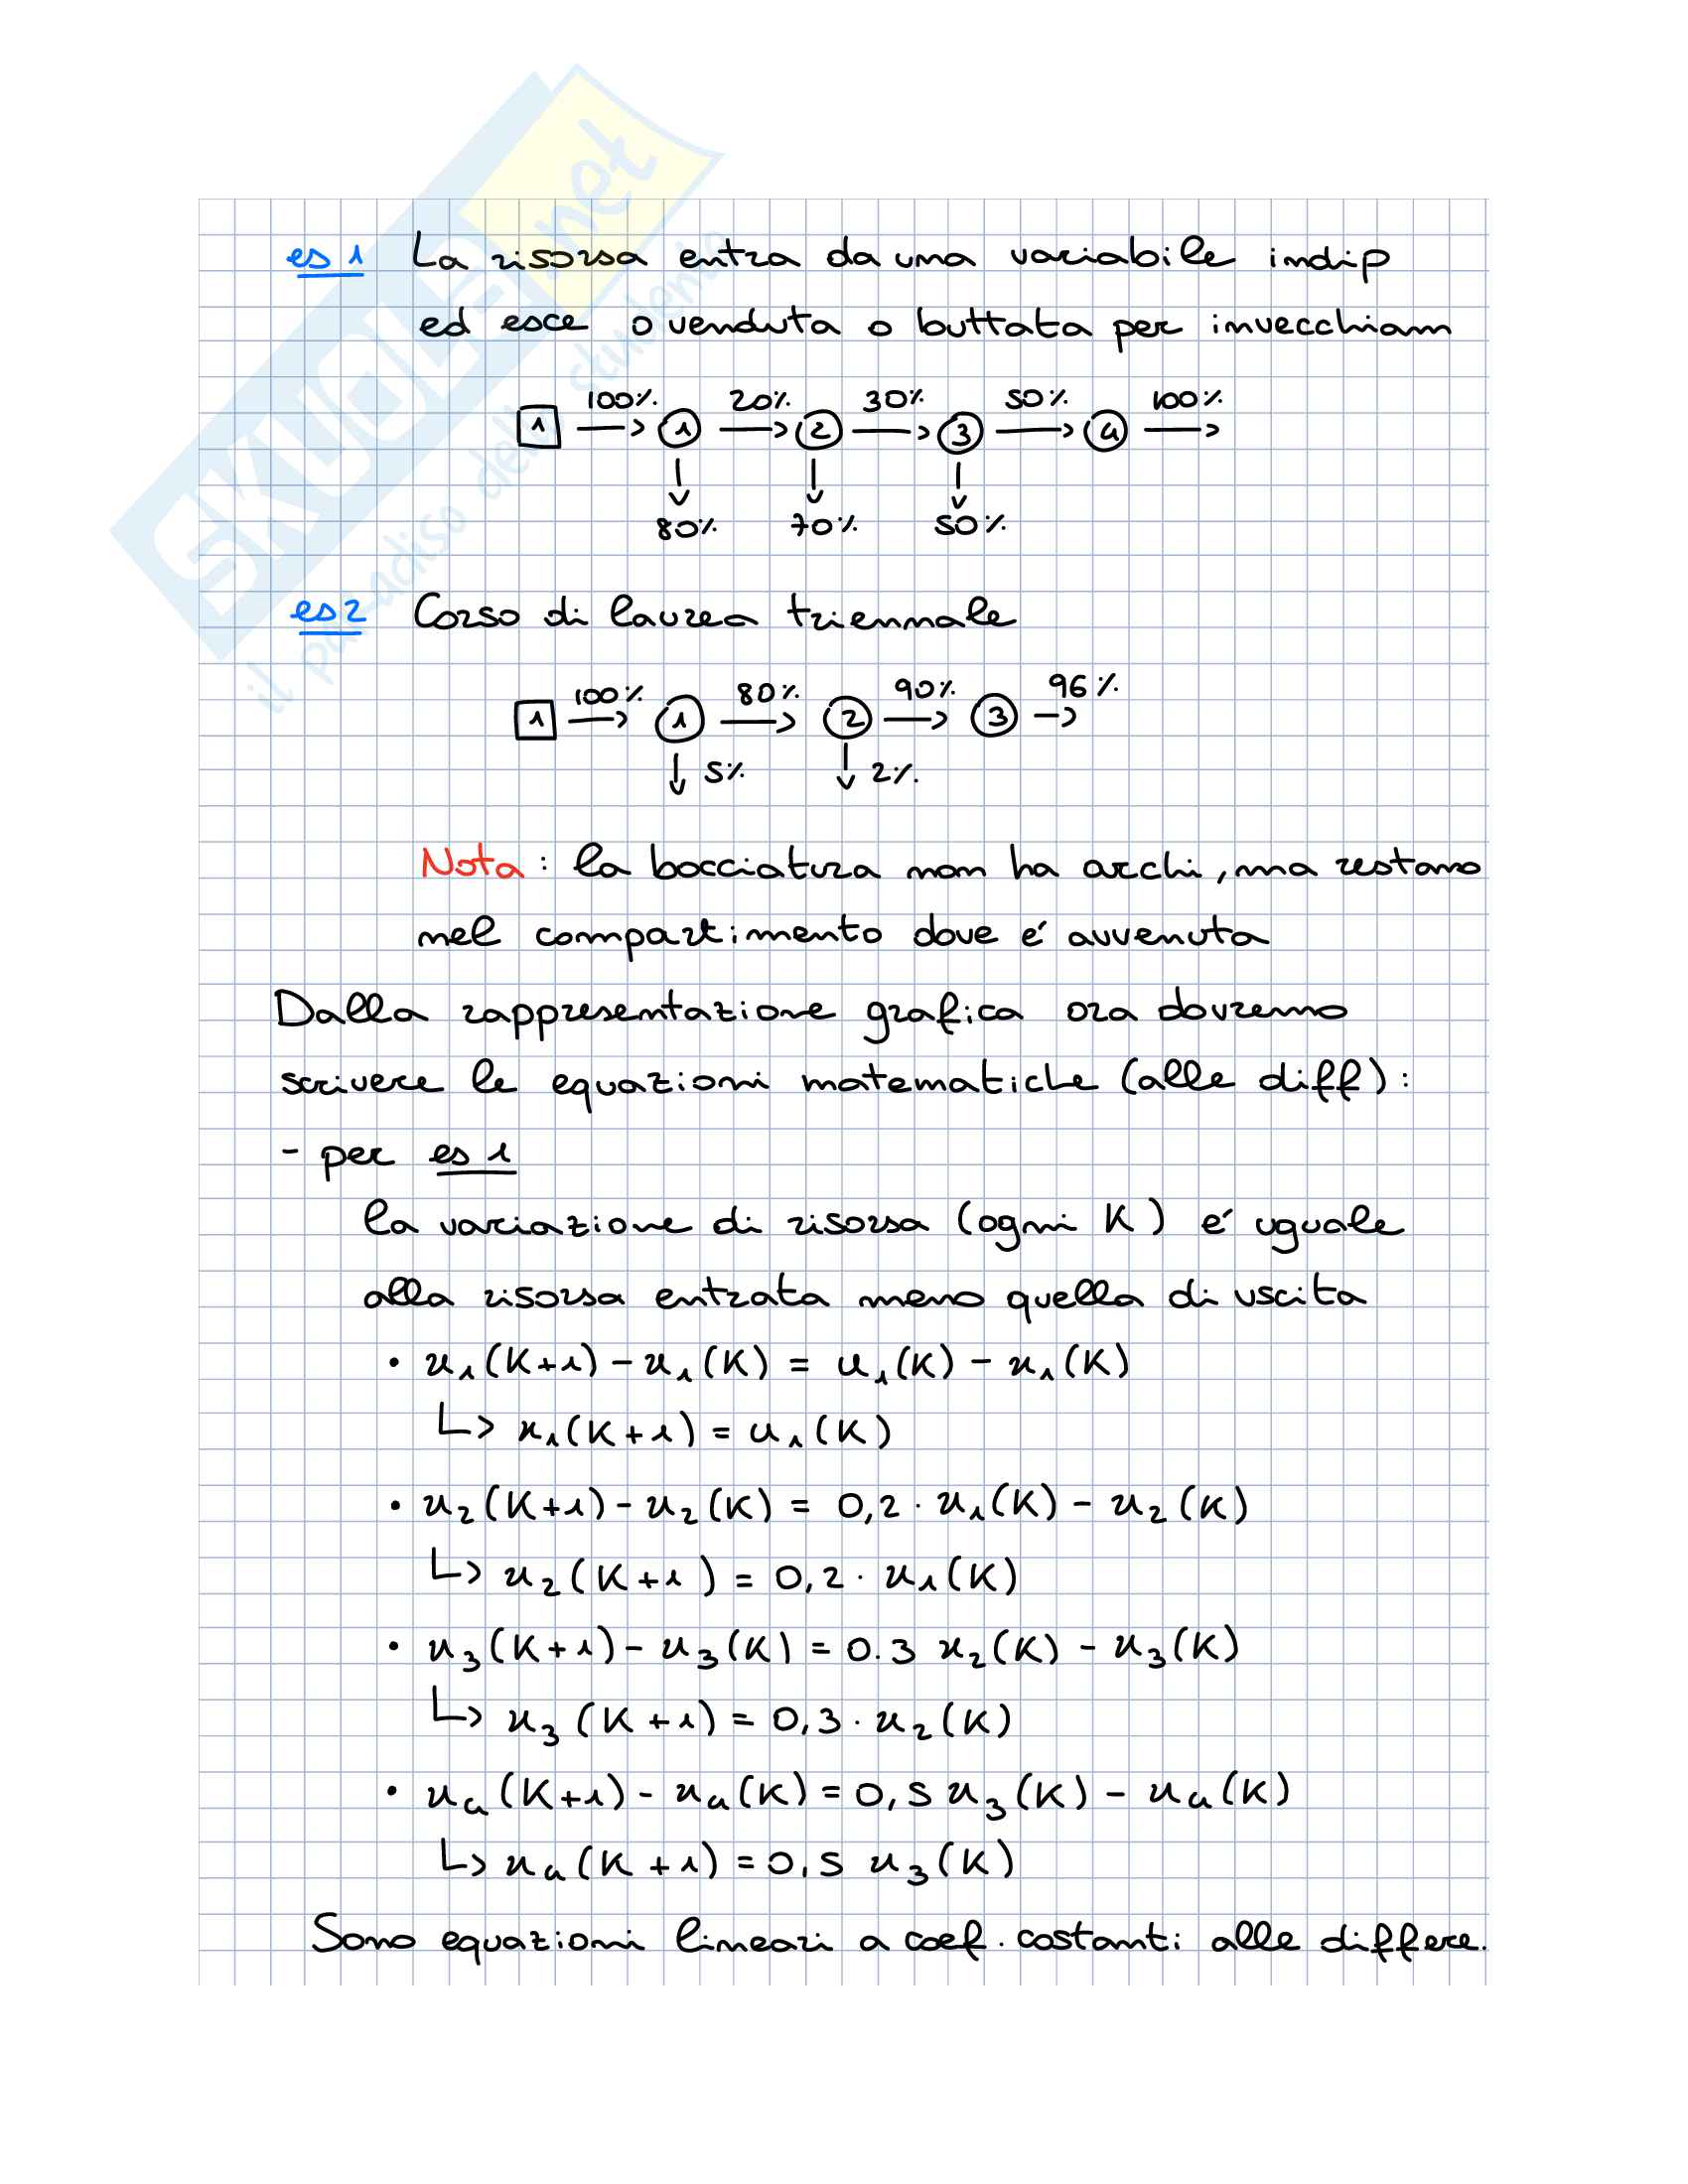 SKUOLA.net
il paradiso dello studente
es 1 La risorsa entra da una variabile indip
ed esce o venduta o buttata per invecchiam
1 100% 1 20% 2 30% 3 50% 4 100%
80% 70% 50%
es 2 Corso di laurea triennale
1 100% 1 80% 2 90% 3 96%
5% 2%
Nota: la bocciatura non ha archi, ma restano
nel compartimento dove é avvenuta
Dalla rappresentazione grafica ora dovremo
scrivere le equazioni matematiche (alle diff):
- per es 1
la variazione di risorsa (ogni K) é uguale
alla risorsa entrata meno quella di uscita
• x₁(K+1) - x₁(K) = u₁(K) - x₁(K)
↳ x₁(K+1) = u₁(K)
• x₂(K+1) - x₂(K) = 0,2 · x₁(K) - x₂(K)
↳ x₂(K+1) = 0,2 · x₁(K)
• x₃(K+1) - x₃(K) = 0.3 x₂(K) - x₃(K)
↳ x₃(K+1) = 0,3 · x₂(K)
• x₄(K+1) - x₄(K) = 0,5 x₃(K) - x₄(K)
↳ x₄(K+1) = 0,5 x₃(K)
Sono equazioni lineari a coef. costanti alle differe.